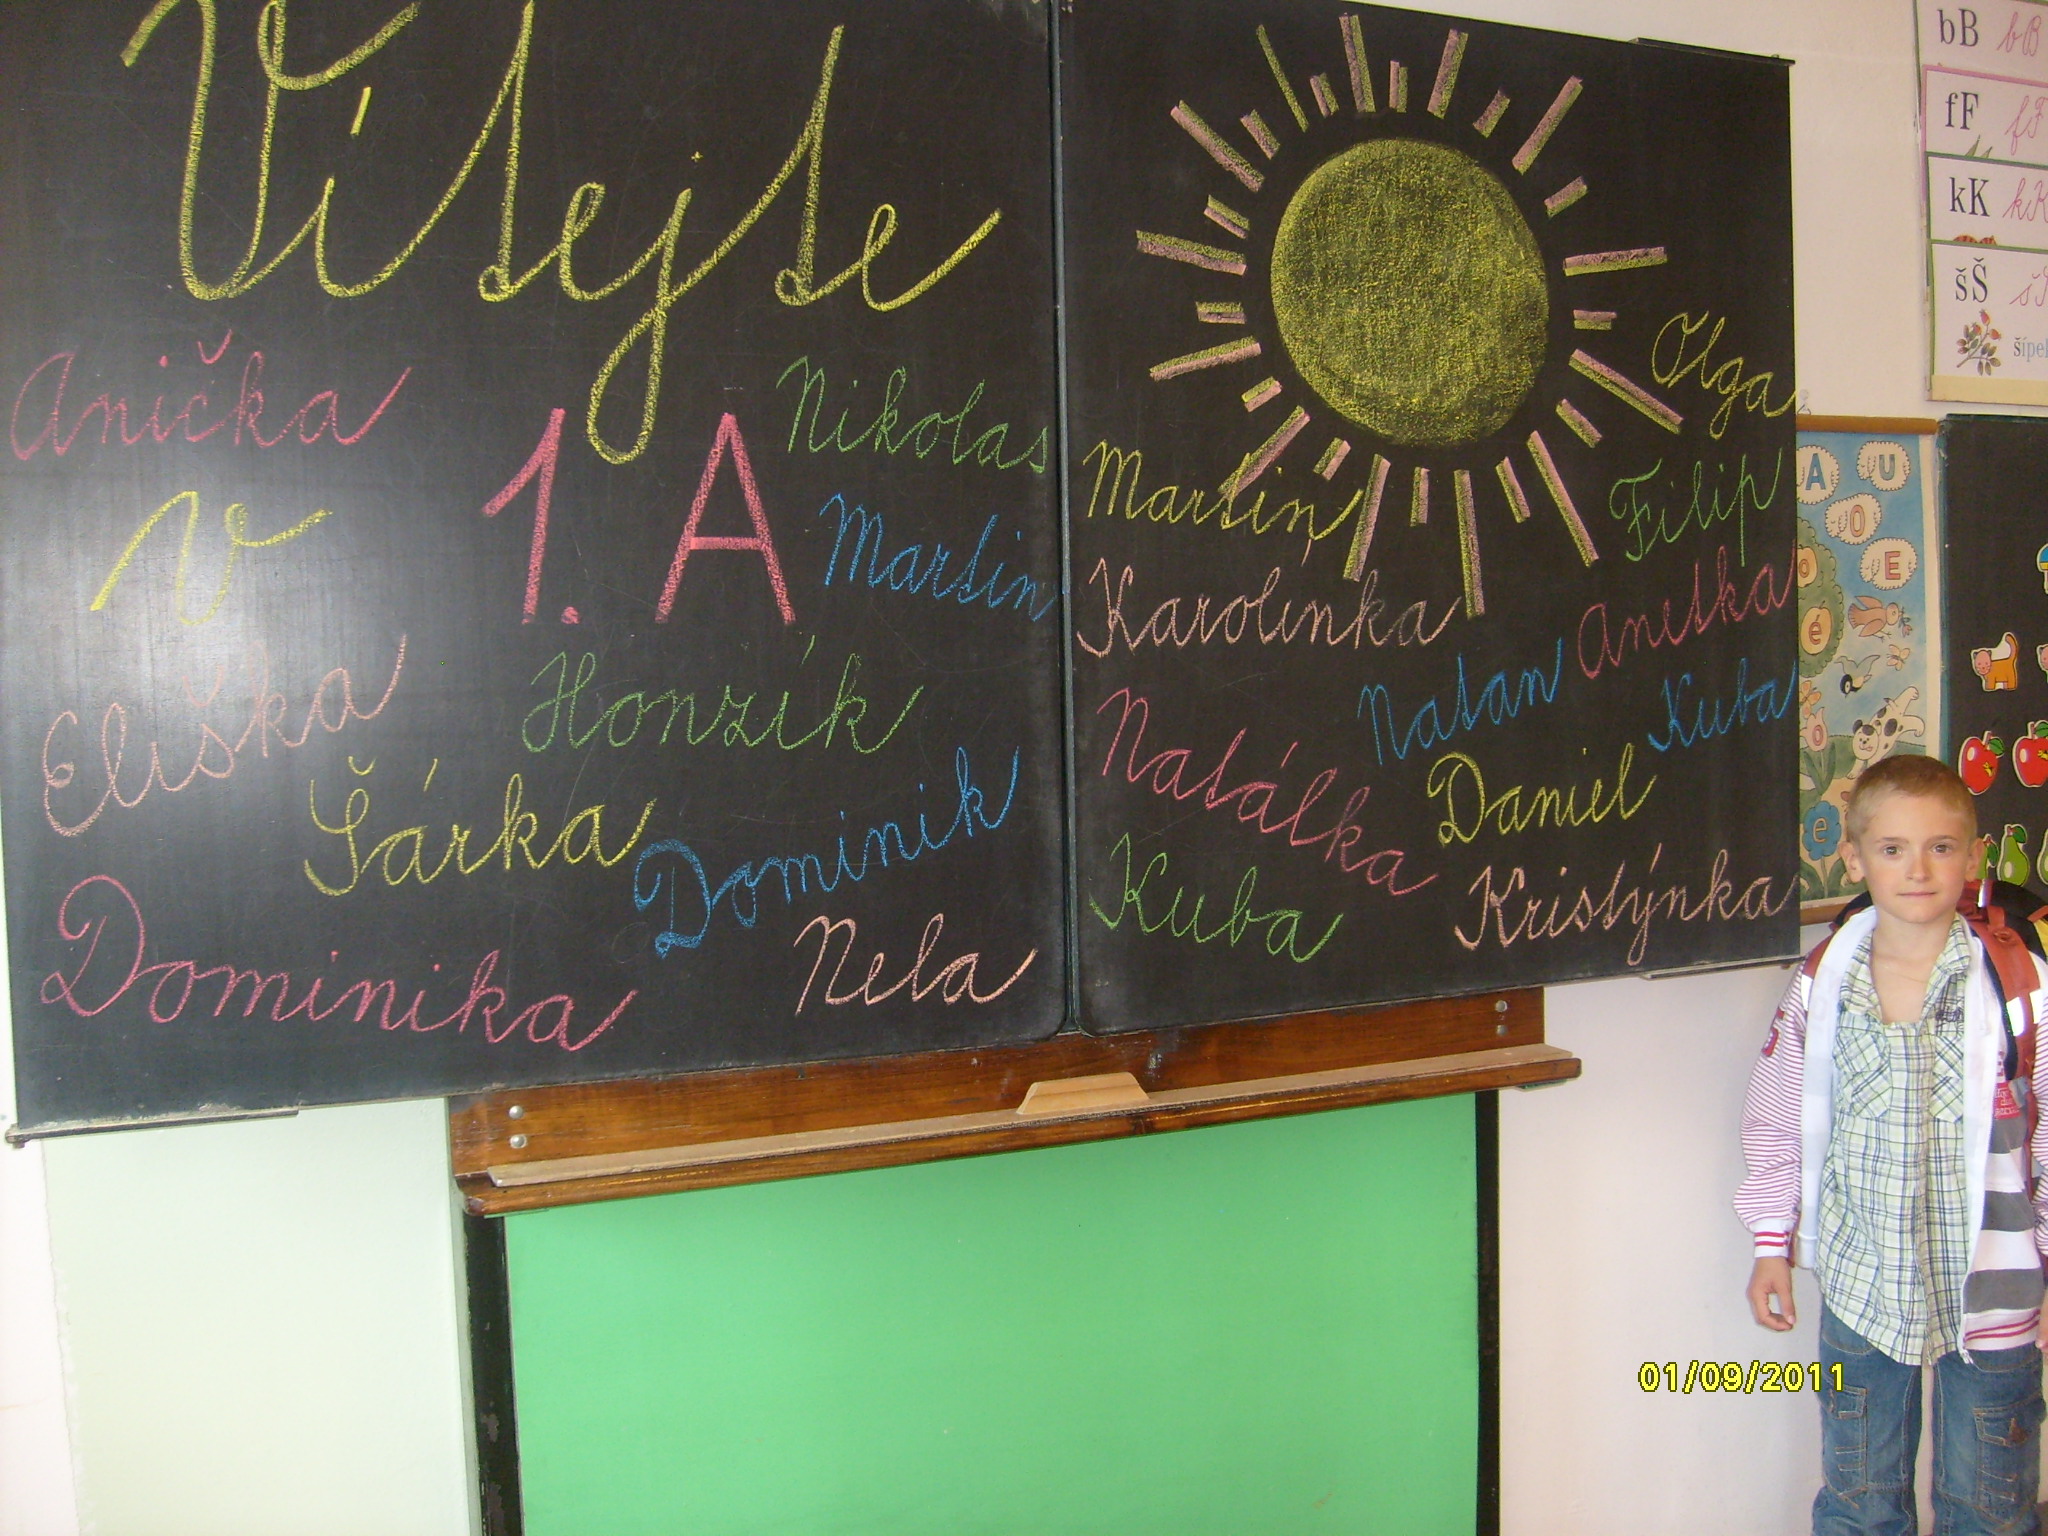 Vítejte
Anička
Nikolas
v 1. A
Martin
Eliška
Honzík
Šárka
Dominik
Dominika
Nela
Olga
Martin
Filip
Karolínka
Anetka
Natan
Kuba
Natálka
Daniel
Kuba
Kristýnka
bB bB
fF fF
kK kK
šŠ šŠ
šípe
A U
O
E
é
e
01/09/2011